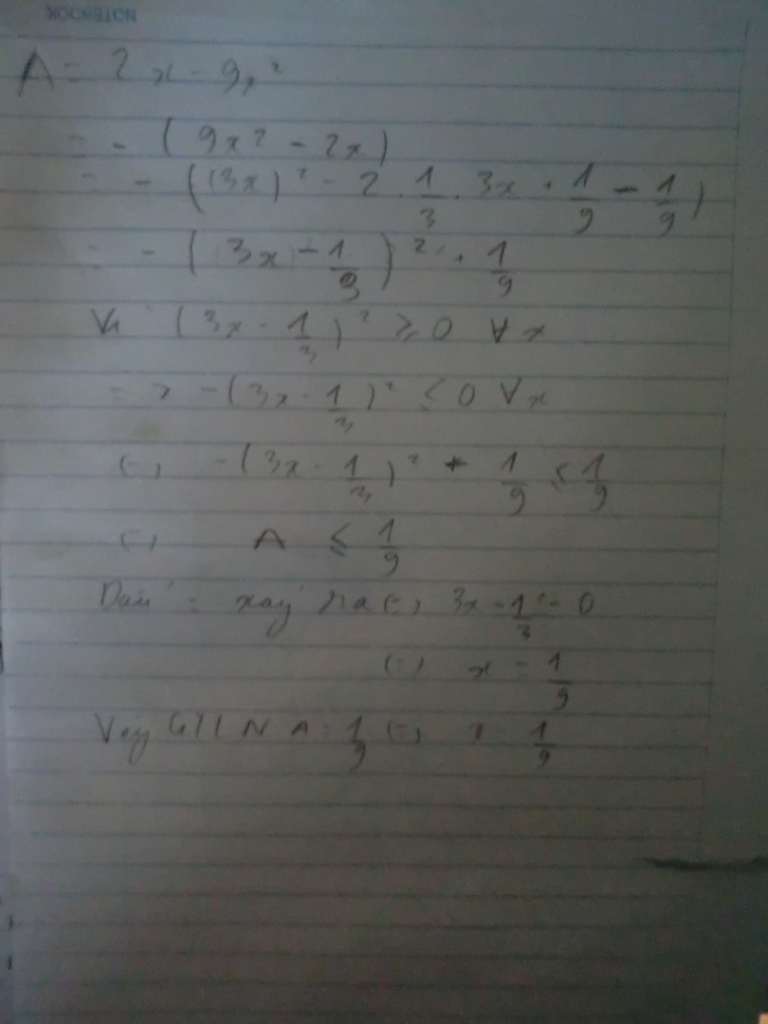 NOTEBOOK
A = 2x - 9x²
= - (9x² - 2x)
= - ((3x)² - 2 . 1/3 . 3x + 1/9 - 1/9)
= - (3x - 1/3)² + 1/9
Vì (3x - 1/3)² ≥ 0 ∀x
=> -(3x - 1/3)² ≤ 0 ∀x
(=) -(3x - 1/3)² + 1/9 ≤ 1/9
(=) A ≤ 1/9
Dấu = xảy ra (=) 3x - 1/3 = 0
(=) x = 1/9
Vậy GTLN A = 1/9 (=) x = 1/9